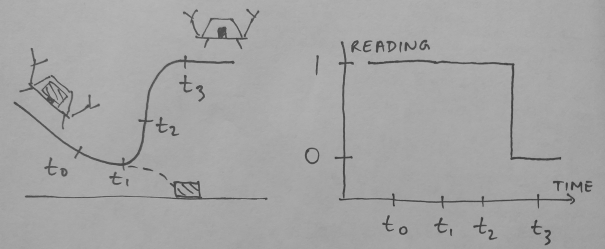 t₃
t₂
t₀
t₁
READING
1
0
TIME
t₀ t₁ t₂ t₃